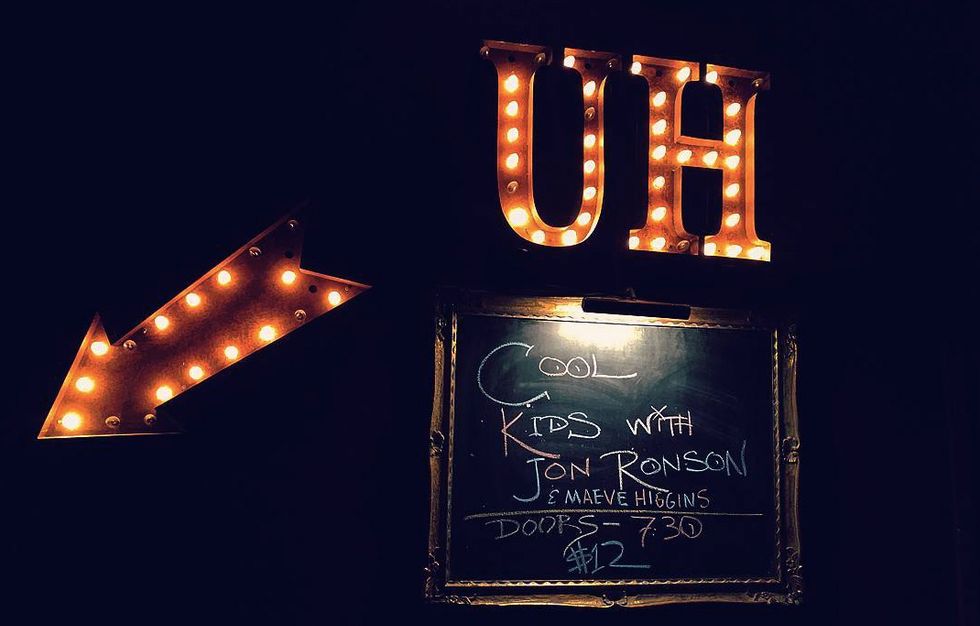 UH
COOL
KIDS WITH
JON RONSON
& MAEVE HIGGINS
DOORS - 7:30
$12